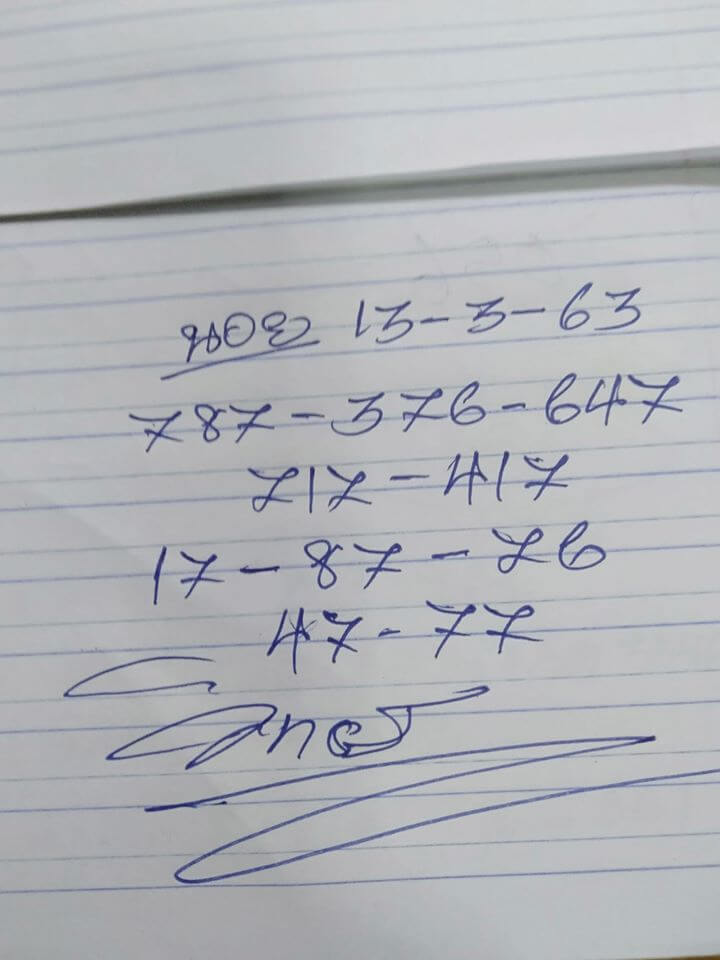 13-3-63
787-376-647
717-417
17-87-76
47-77